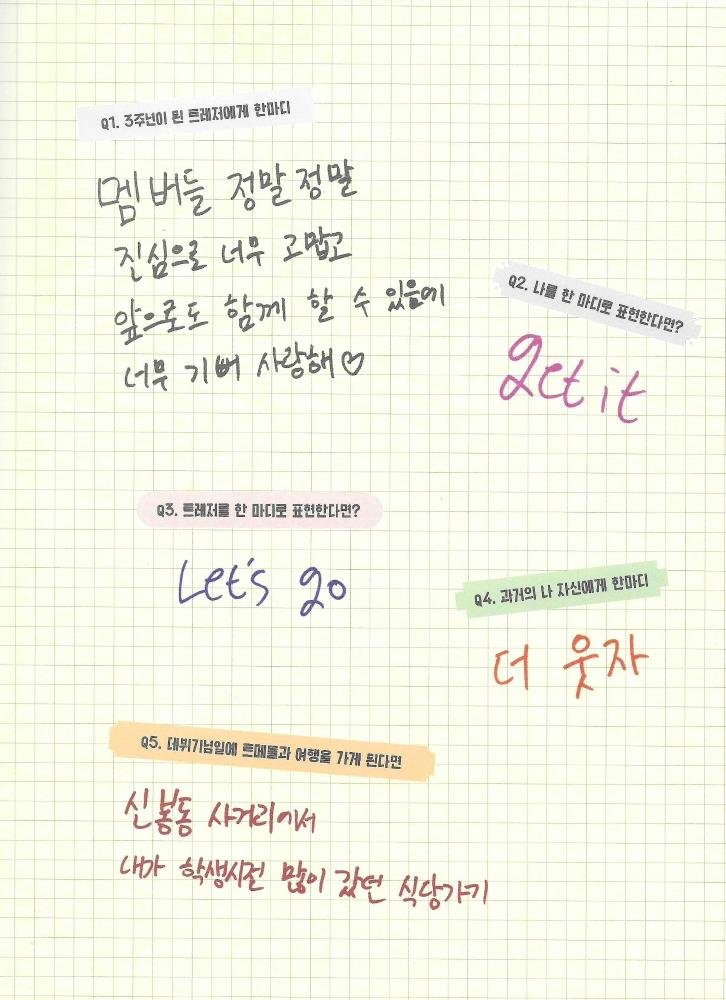 Q1. 3주년이 된 트레저에게 한마디
멤버들 정말정말
진심으로 너무 고맙고
앞으로도 함께 할 수 있음에
너무 기뻐 사랑해♡
Q2. 나를 한 마디로 표현한다면?
get it
Q3. 트레저를 한 마디로 표현한다면?
Let's go
Q4. 과거의 나 자신에게 한마디
더 웃자
Q5. 데뷔기념일에 트메들과 여행을 가게 된다면
신봉동 사거리에서
내가 학생시절 많이 갔던 식당가기